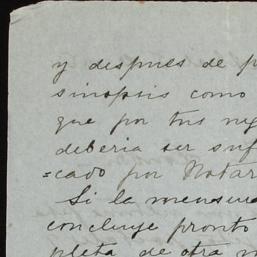 y despues de p
sinopsis como
que por tus neg
deberia ser suf
=cado por Notar
Si la mensura
concluye pronto
pleta de otra m